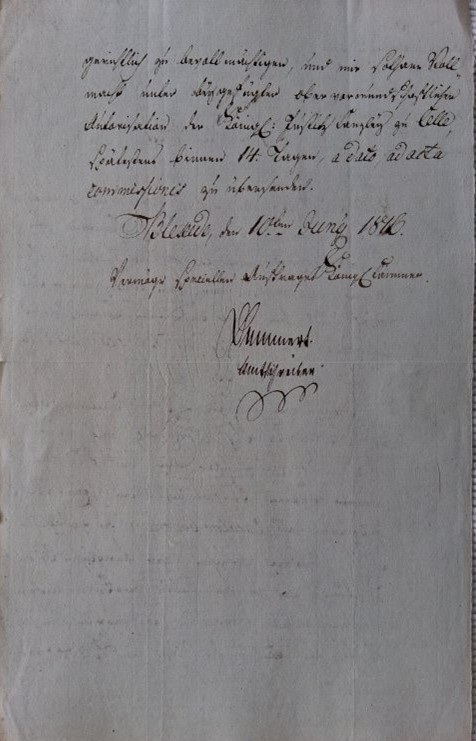 gerichtlich zu bevollmächtigen, und mir solchane Voll-
macht unter beygefügter obervormundschaftlichen
Autorisation der Königl: Justitz Canzley zu Celle,
spätestens binnen 14 Tagen, a dato ad acta
commissionis zu übersenden.
den 10ten Juny 1816.
Vermöge speciellen Auftrages Königl Cammer.
Amtschreiber.